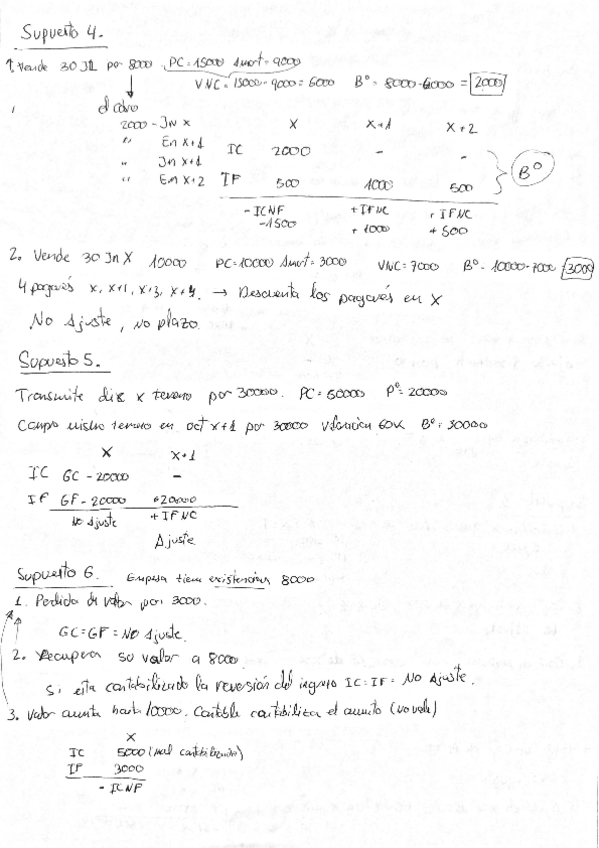 Supuesto 4.
1. Vende 30 Jn por 8000. PC=15000 Amort=9000
VNC=15000-9000=6000 Bº= 8000-6000=2000
el cobro
2000-Jn x x x+1 x+2
" En x+1 IC 2000 - -
" Jn x+1
" En x+2 IF 500 1000 500 Bº
-ICNF +IFNC +IFNC
-1500 +1000 +500
2. Vende 30 Jn X 10000 PC=10000 Amort=3000 VNC=7000 Bº= 10000-7000=3000
4 pagarés x, x+1, x+3, x+4. → Descuenta los pagarés en X
No Ajuste, No plazo.
Supuesto 5.
Transmite dic x terreno por 30000. PC=50000 Pº=20000
Compra mismo terreno en oct x+1 por 30000 60K Bº=30000
X X+1
IC GC-20000 -
IF GF-20000 +20000
No Ajuste +IFNC
Ajuste
Supuesto 6. Empresa tiene existencias 8000
1. Perdida de valor por 3000.
GC=GF=No Ajuste.
2. Recupera su valor a 8000
Si esta contabilizado la reversión del ingreso IC=IF= No Ajuste.
3. Valor aumenta hasta 10000. Contable contabiliza el aumento (no vale)
X
IC 5000 (mal contabilizado)
IF 3000
-ICNF